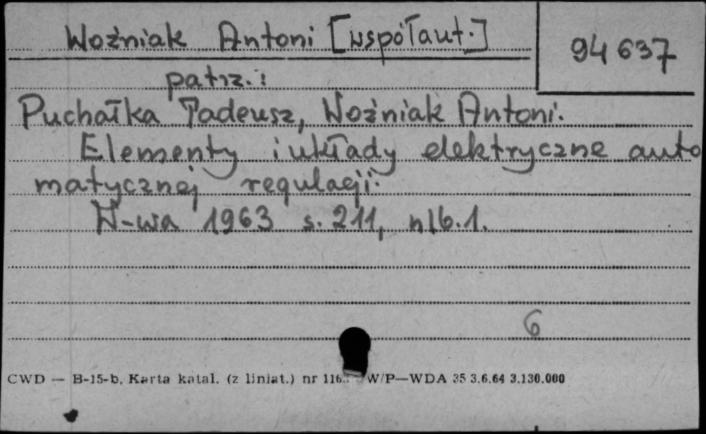 Woźniak Antoni [współaut.]
94637
patrz:
Puchałka Tadeusz, Woźniak Antoni.
Elementy i układy elektryczne auto
matycznej regulacji.
W-wa 1963 s. 211, nlb. 1.
6
CWD — B-15-b. Karta katal. (z liniat.) nr W/P—WDA 35 3.6.64 3.130.000